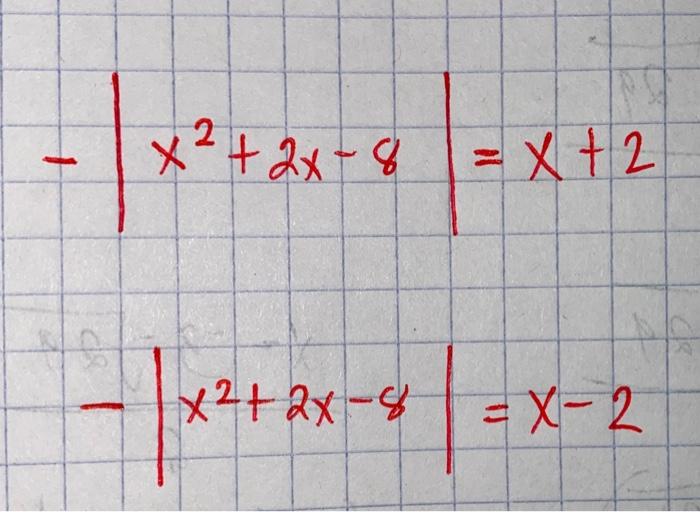 - | x² + 2x - 8 | = x + 2
- | x² + 2x - 8 | = x - 2